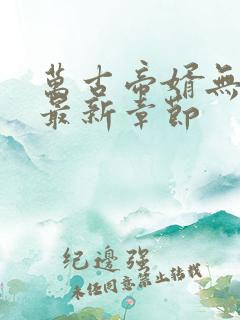 萬古帝婿無
最新章節
纪邊强
未任同意禁止转载